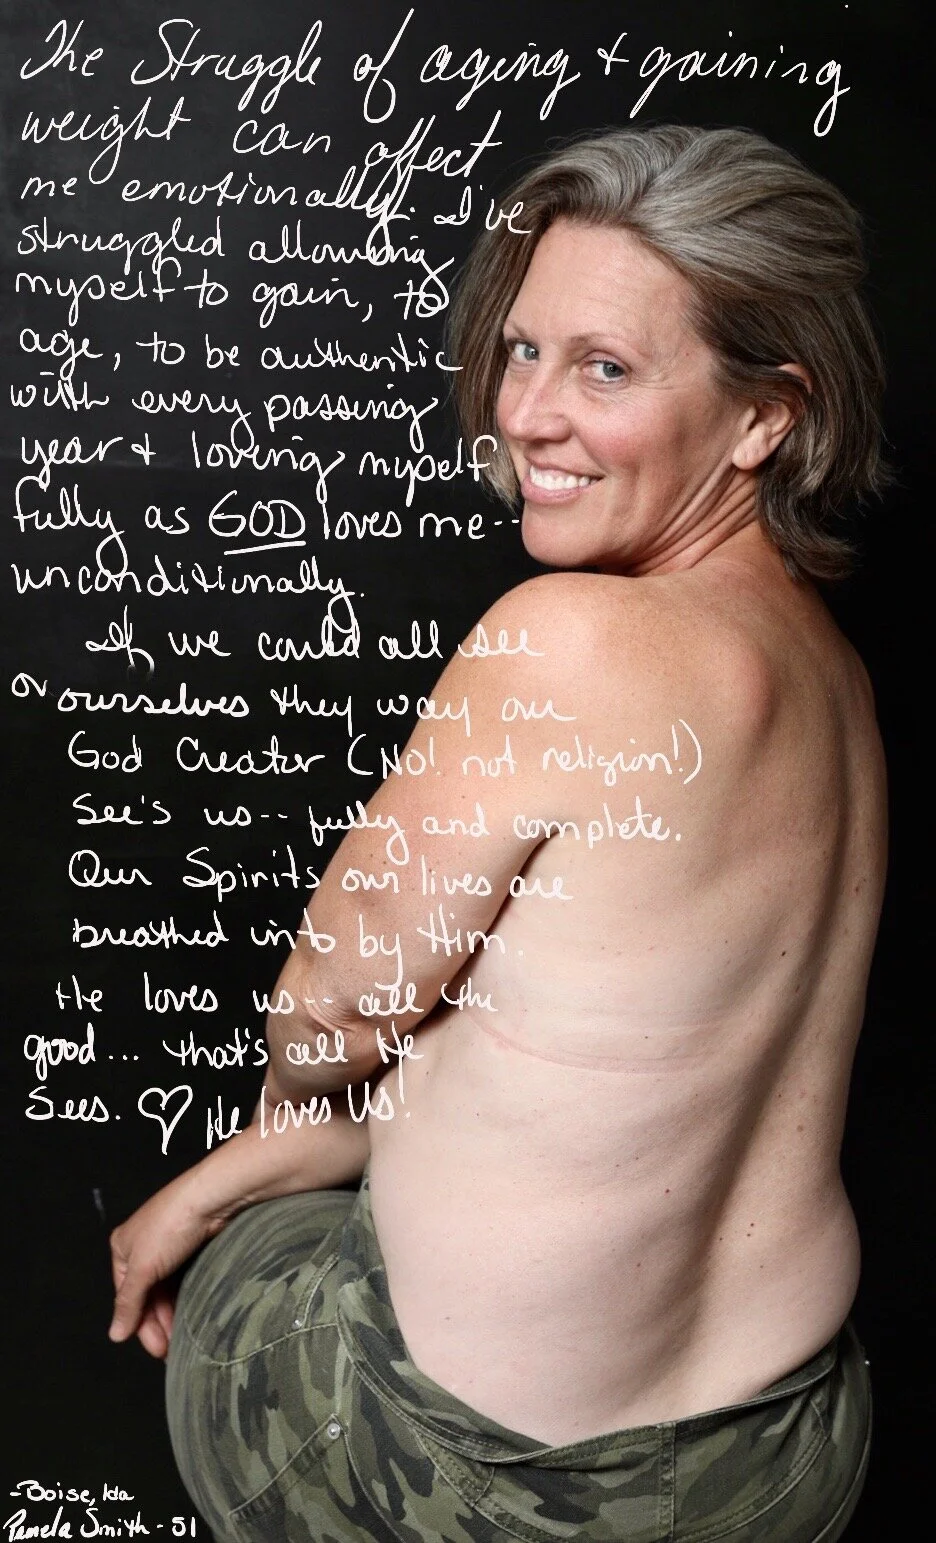 The Struggle of aging & gaining
weight can affect
me emotionally. I've
struggled allowing
myself to gain, to
age, to be authentic
with every passing
year & loving myself
fully as GOD loves me--
unconditionally.
If we could all see
ourselves they way our
God Creator (NO! not religion!)
See's us-- fully and complete.
Our Spirits our lives are
breathed into by Him.
He loves us-- all the
good... that's all He
Sees. ♡ He loves Us!
-Boise, Ida
Pamela Smith - 51